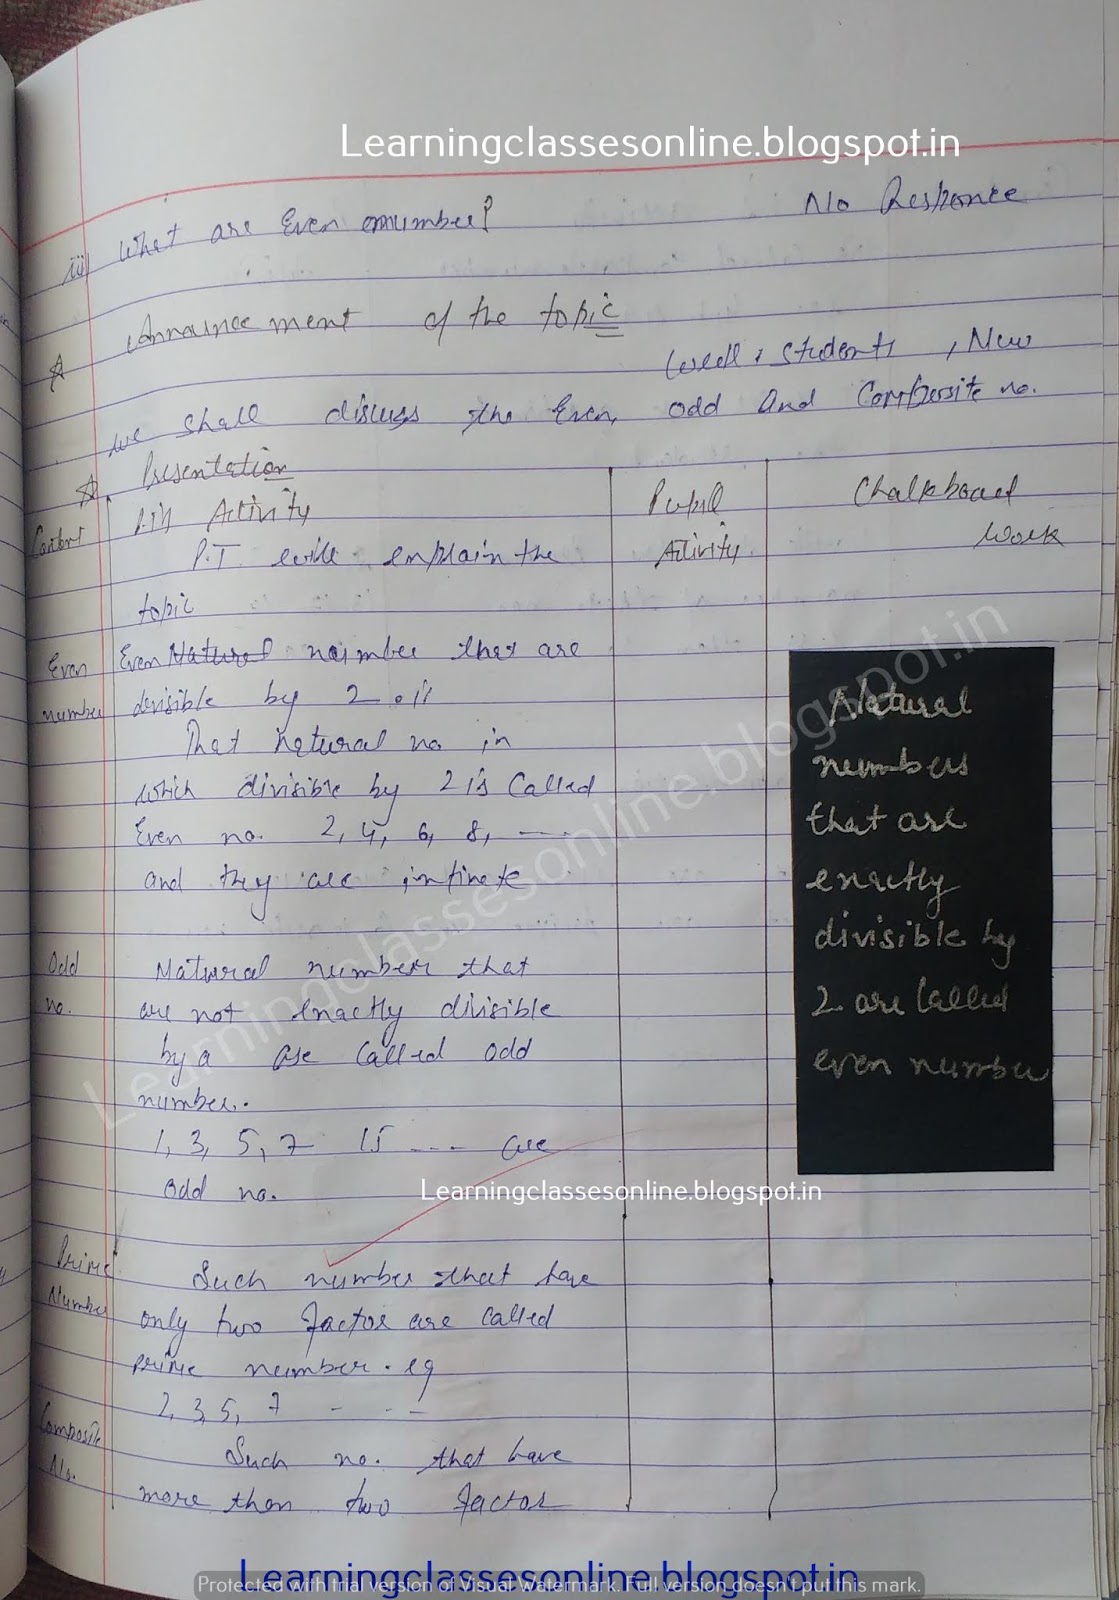 Learningclassesonline.blogspot.in
iii) What are Even number? No Response
☆ Announcement of the topic
Well, students, Now
we shall discuss the Even, odd and Composite no.
☆ Presentation
Content P.T's Activity Pupil Activity Chalkboard Work
P.T will explain the
topic
Even number
Even Natural number that are
divisible by 2.
That natural no in
which divisible by 2 is Called
Even no. 2, 4, 6, 8, ---
and they are infinate
Odd no.
Natural number that
are not enactly divisible
by a are called odd
number.
1, 3, 5, 7 15 --- are
odd no.
Prime Number
Such number that have
only two factor are called
prime number. eg
2, 3, 5, 7 - - -
Composite No.
Such no. that have
more than two factor
Natural
numbers
that are
enactly
divisible by
2 are Called
even number
Learningclassesonline.blogspot.in
Learnindclassesonline.blogspot.in
Learningclassesonline.blogspot.in
Protected with trial version of Visual Watermark. Full version doesn't put this mark.